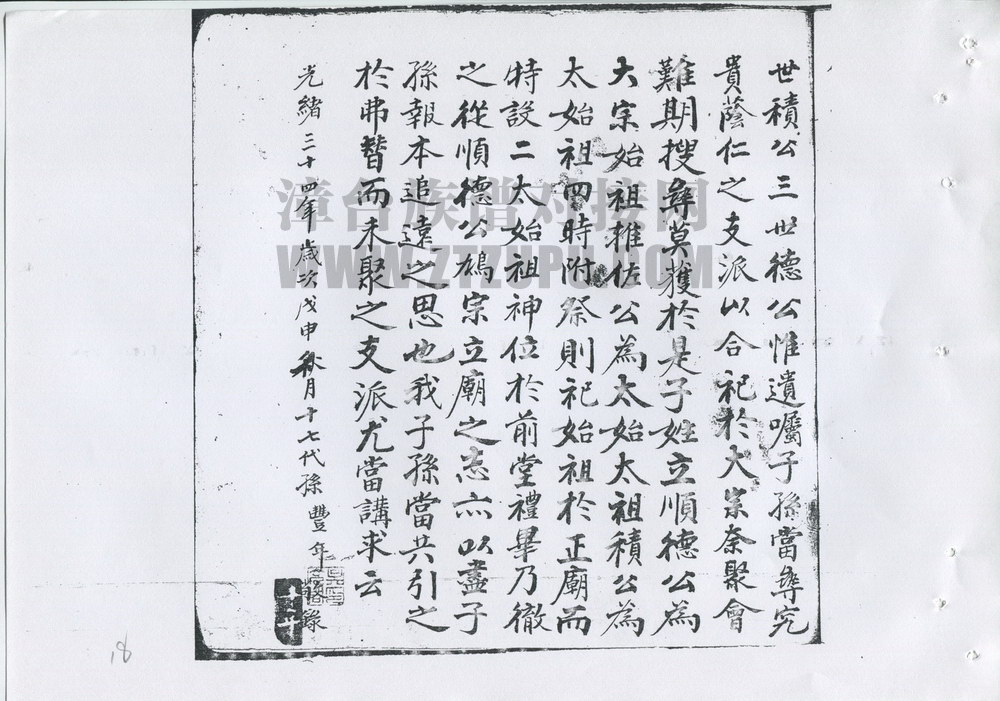 世積公三世德公惟遺囑子孫當尋究
貴蔭仁之支派以合祀於大宗奈聚會
難期搜尋莫獲於是子姓立順德公為
大宗始祖推佐公為太始太祖積公為
太始祖四時附祭則祀始祖於正廟而
特設二太始祖神位於前堂禮畢乃徹
之從順德公鳩宗立廟之志亦以盡子
孫報本追遠之思也我子孫當共引之
於弗替而未聚之支派尤當講求云
光緒三十四年歲次戊申秋月十七代孫豐年 錄
漳台族譜对接网
WWW.ZTZUPU.COM
18